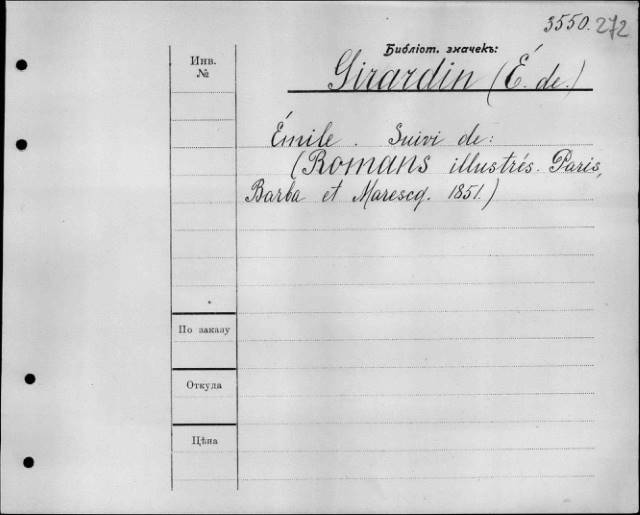 3550. 272
Библіот. значекъ:
Инв.
№
Girardin (É. de.)
Émile. Suivi de:
(Romans illustrés. Paris,
Barba et Marescq. 1851.)
По заказу
Откуда
Цѣна